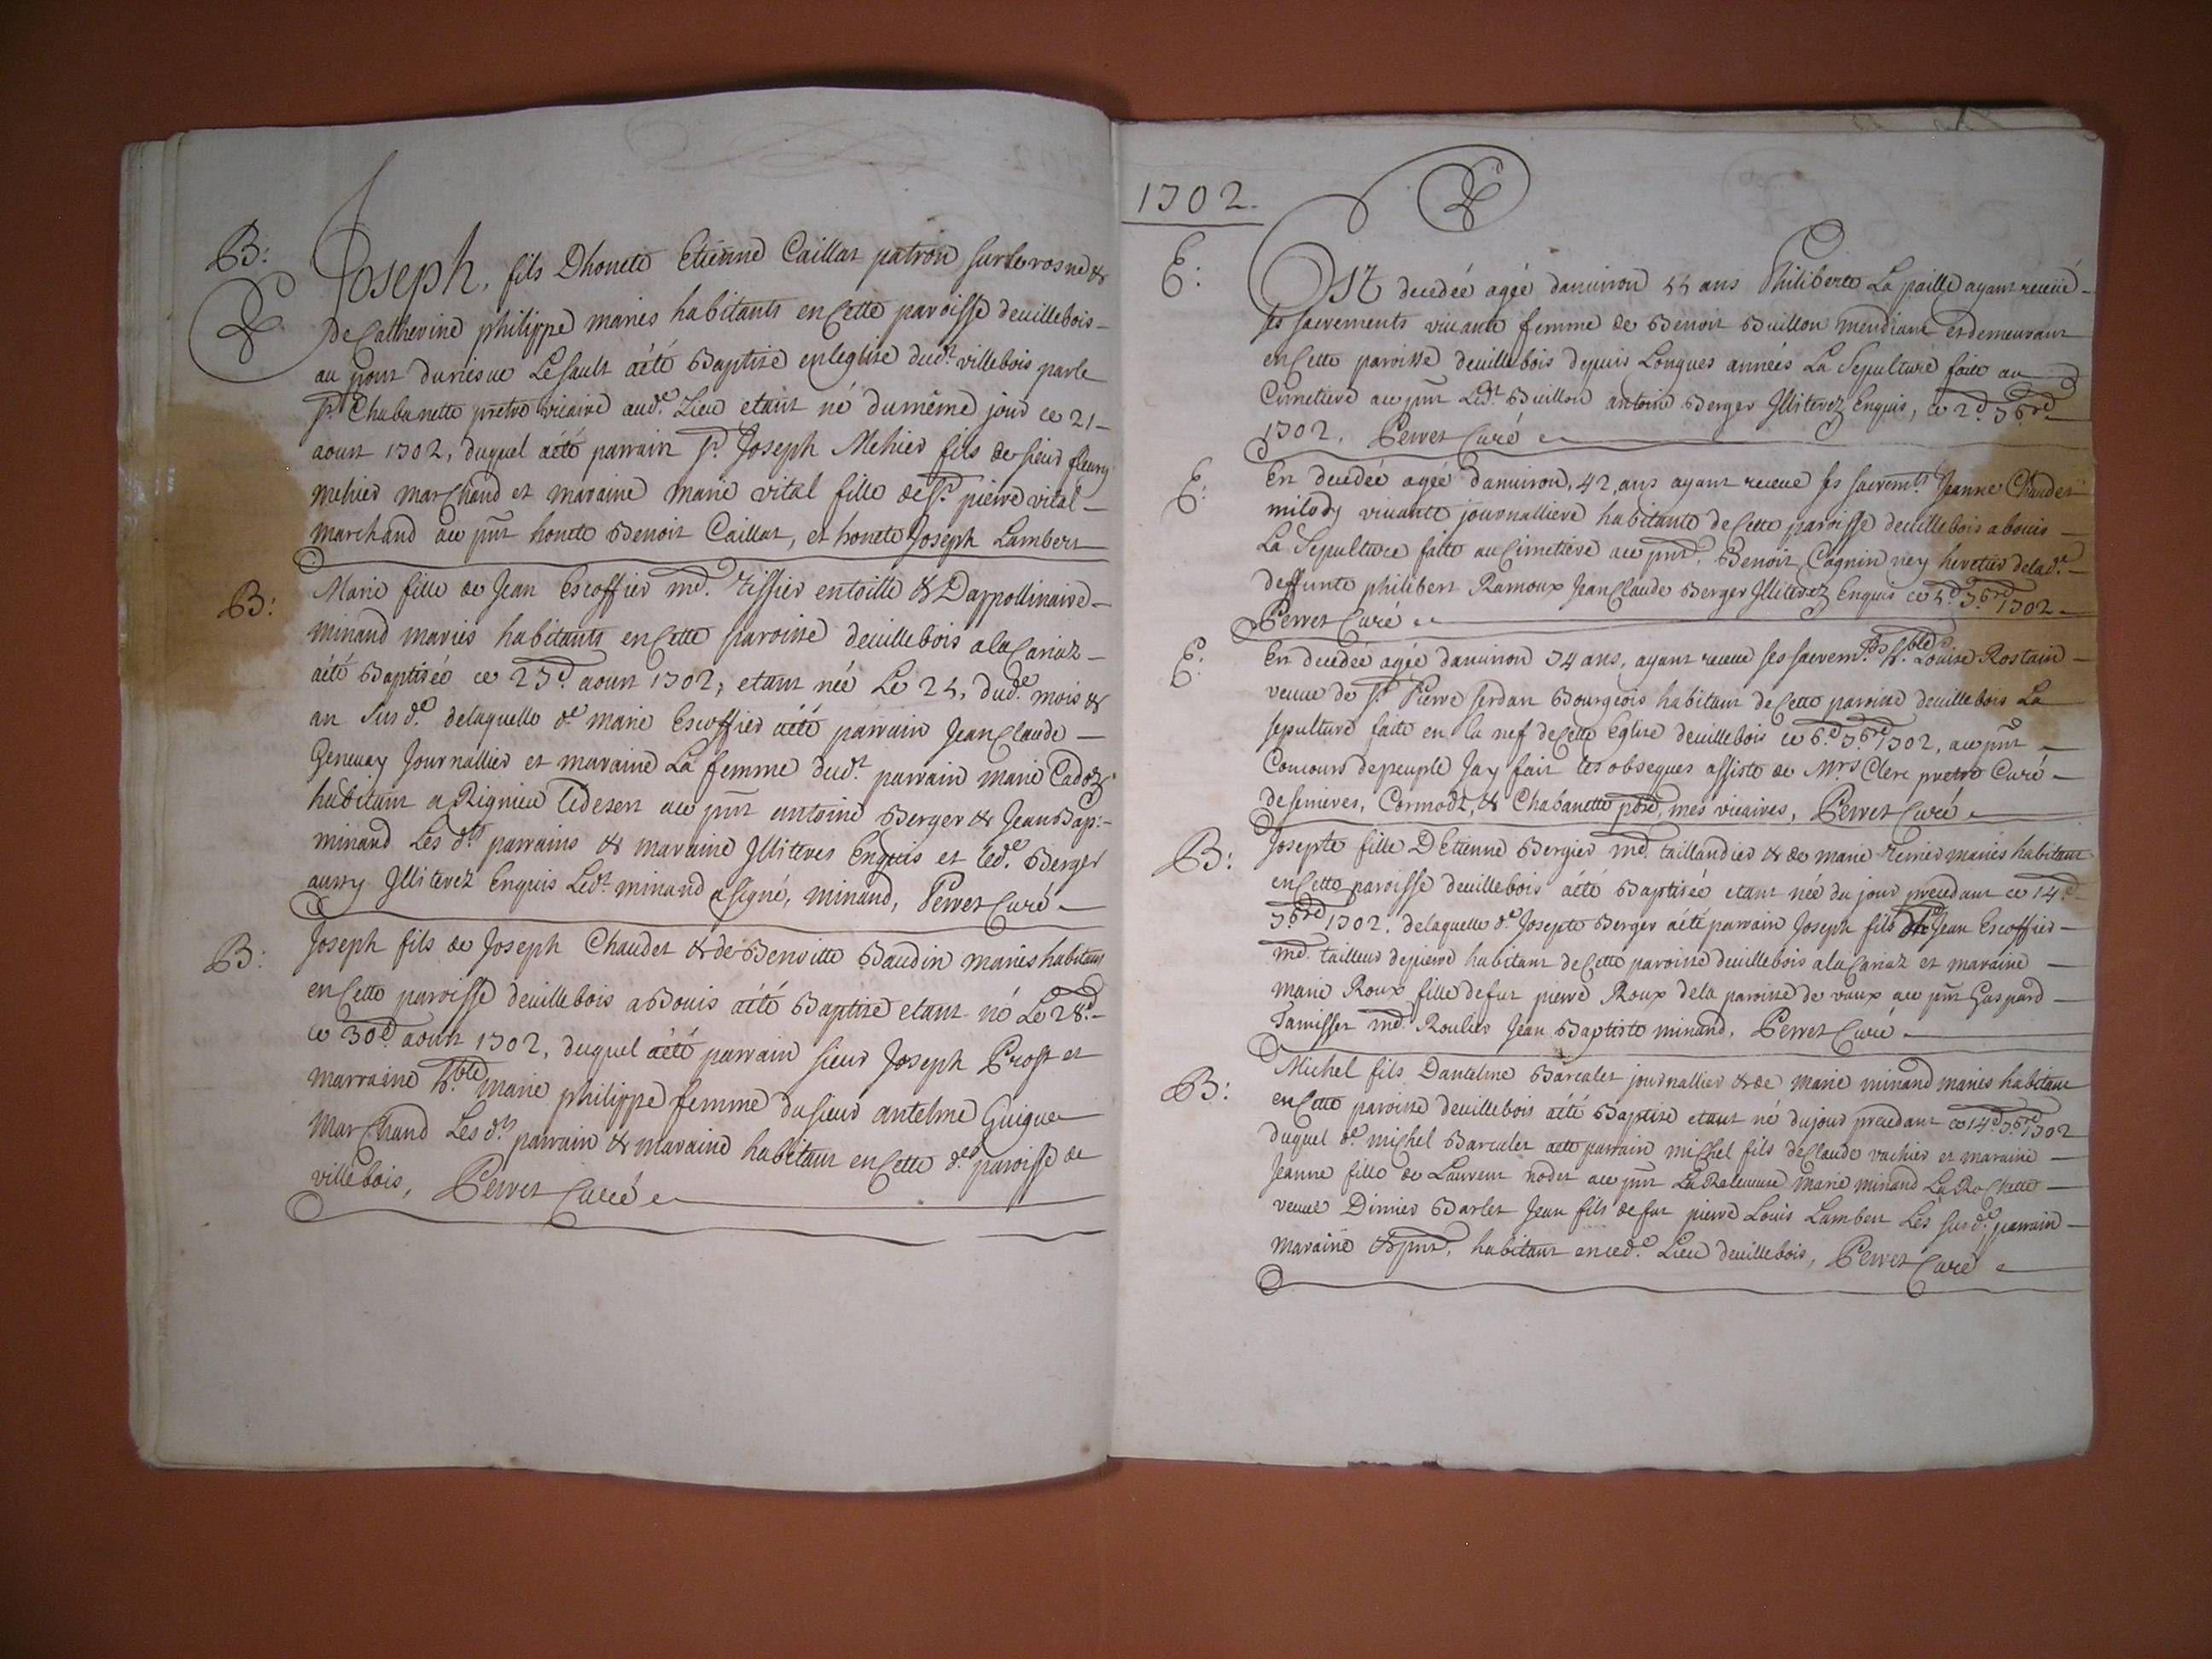 B:
Joseph, fils Dhonete Etienne Caillat patron sur le rosne &
de Catherine philippe mariés habitants en Cette paroisse deuillebois -
au pont duriesue Le Sault aété Baptisé en leglise dudt. villebois par le
Sr. Chabanette pretre vicaire aude. Lieu etant né du même jour ce 21 -
aoust 1702, duquel aété parrain Sr. Joseph Mehier fils de sieur fleury
mehier marchand et maraine marie vital fille de Sr. pierre vital -
marchand au pnt honete Benoit Caillat, et honete Joseph Lambert
B:
Marie fille de Jean Escoffier md. tissier en toille & Dappollinaire -
minand mariés habitants en Cette paroisse deuillebois ala Cariaz -
aété Baptiséé ce 27d. aoust 1702, etant néé Le 25, dude. mois &
an Susde. de laquelle de. marie Escoffier aété parrain Jean Claude -
Genevay Journallier et maraine La femme dudt. parrain marie Cadoz
habitant a Rignieu Le desert au pnt antoine Berger & Jean Bap: -
minand Les dts. parrains & maraine Jlliteres Enquis et Lede. Berger
aussy Jlliterez Enquis Ledt. minand a signé, minand, Perret Curé
B:
Joseph fils de Joseph Chaudet & de Benoitte Baudin mariés habitant
en Cette paroisse deuillebois a Bouis aété Baptisé etant né Le 28d. -
ce 30d. aoust 1702, duquel aété parrain sieur Joseph Prost et
marraine h.ble marie philippe femme du sieur antelme Guigue
Marchand Les dts. parrain & maraine habitant en Cette de. paroisse de
villebois, Perret Curé
1702.
E:
Est decedéé agéé danuiron 55 ans Philiberte La paille ayant receue -
ses sacrements viuante femme de Benoit Buillon mendiant et demeurant
en Cette paroisse deuillebois depuis Longues années La Sepulture faite au
Cimetiere au pnt Ledt. Buillon antoine Berger Jlliterez Enquis, ce 2d. 7bre
1702. Perret Curé
E:
Est decedéé agéé danuiron, 42, ans ayant receue ses sacremts. Jeanne Chaudet
milody viuante journalliere habitante de Cette paroisse deuillebois abouis -
La Sepulture faite au Cimetiere au pnt, Benoit Cagnin ney heretier de lade. -
deffunte philibert Ramoux Jean Claude Berger Jlliterez Enquis ce 5d. 7bre 1702 -
Perret Curé
E:
Est decedéé agéé danuiron 74 ans, ayant receue ses sacremts. h.ble Louise Rostain -
veuue de Sr. Pierre Serdan Bourgeois habitant de Cette paroisse deuillebois La
sepulture faite en la nef de Cette Eglise deuillebois ce 6d. 7bre 1702, au pnt
Concours de peuple Jay fait les obseques assisté de Mrs Clerc pretre Curé -
de Serrieres, Cormodt, & Chabanette ptre, mes vicaires, Perret Curé
B:
Josepte fille DEtienne Bergier md. taillandier & de marie Terrier mariés habitant
en Cette paroisse deuillebois aété Baptiséé etant néé du jour precedant ce 14d.
7bre 1702. de laquelle de. Josepte Berger aété parrain Joseph fils de Jean Escoffier -
md. tailleur de pierre habitant de Cette paroisse deuillebois ala Cariaz et maraine -
marie Roux fille de fut pierre Roux de la paroisse de vaux au pnt Gaspard -
Tamisset md. Roulier Jean Baptiste minand. Perret Curé
B:
Michel fils Dantelme Barcalet journallier & de marie minand mariés habitant
en Cette paroisse deuillebois aété Baptisé etant né du jour precedant ce 14d. 7bre 1702
duquel de. michel Barcalet aété parrain michel fils de Claude vachier et maraine -
Jeanne fille de Laurent nodet au pnt La Releueuse marie minand La Rochette -
veuue Dimier Barlet Jean fils de fut pierre Louis Lambert Les susde. parrain -
maraine & pnt. habitant en cede. Lieu deuillebois, Perret Curé